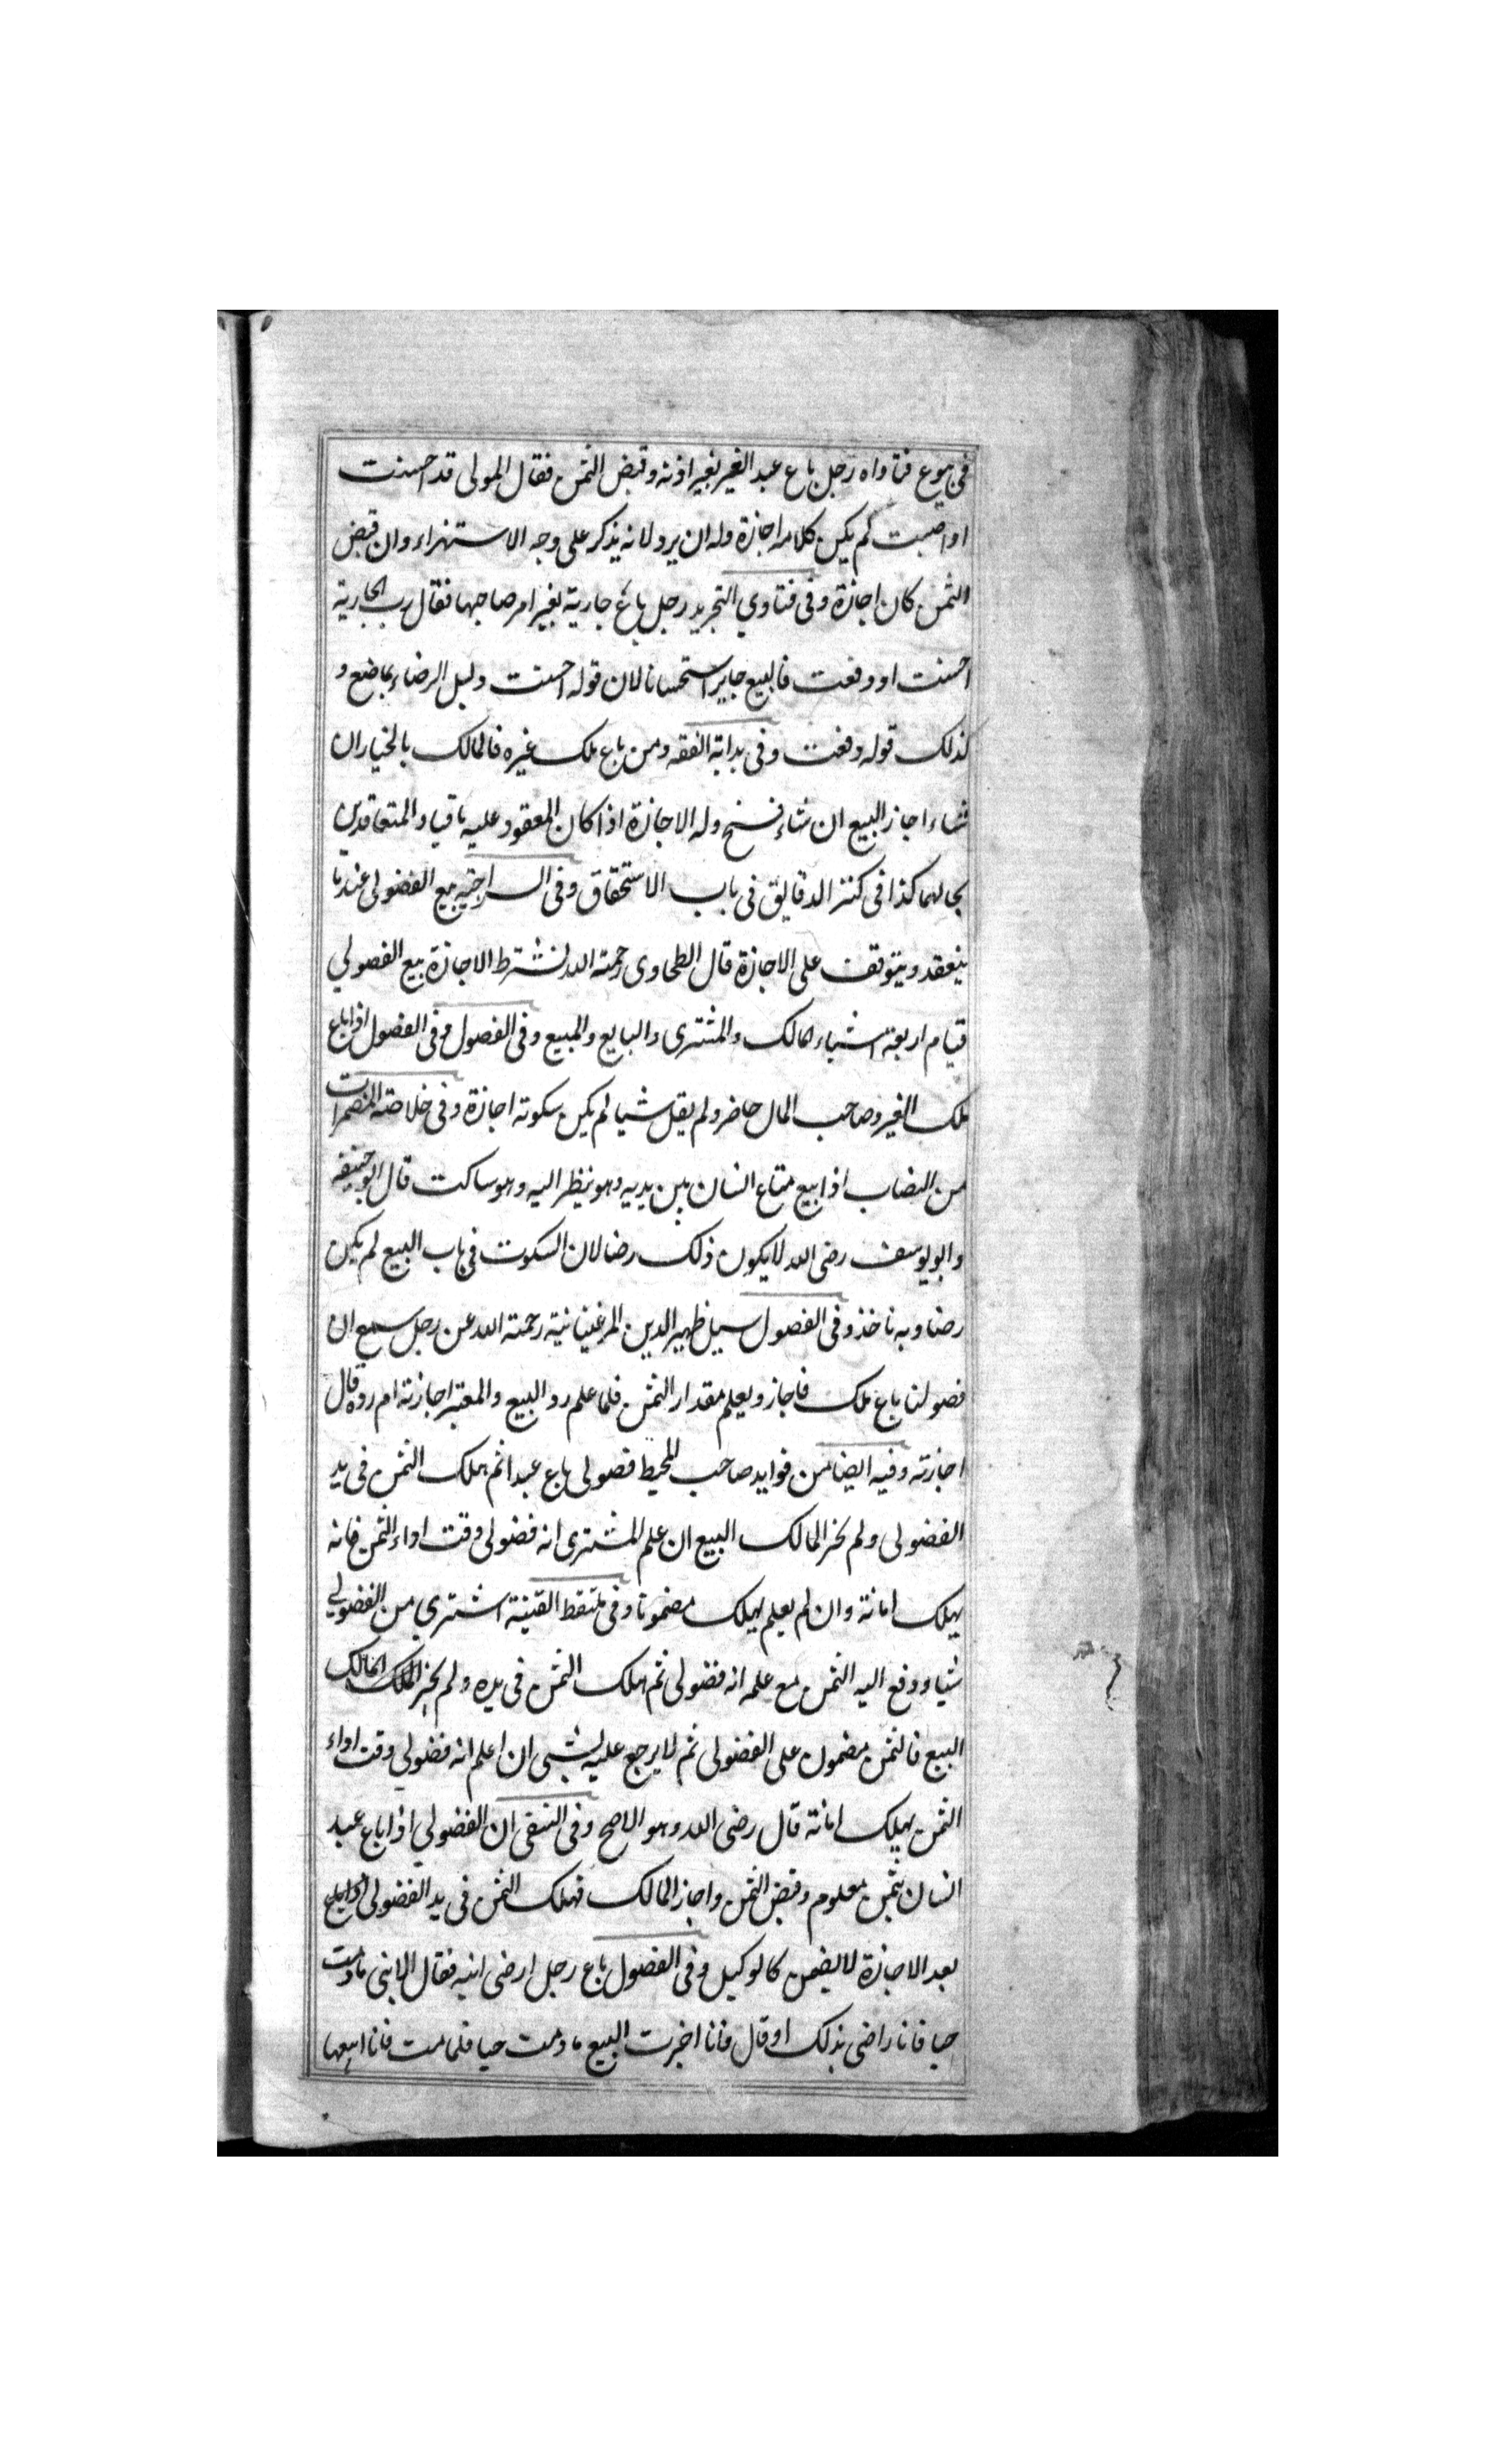 فى بيوع فتاواه رجل باع عبد الغير بغير اذنه وقبض الثمن فقال المولى قد احسنت
او اصبت لم يكن كلامه اجازة وله ان يرد لانه يذكر على وجه الاستهزاء وان قبض
الثمن كان اجازة وفى فتاوي التجريد رجل باع جارية بغير امر صاحبها فقال رب الجارية
احسنت او وفقت فالبيع جايز استحسانا لان قوله احسنت دليل الرضاء بما صنع و
كذلك قوله وفقت وفى بداية الفقه ومن باع ملك غيره فالمالك بالخيار ان
شاء اجاز البيع ان شاء فسخ وله الاجازة اذا كان المعقود عليه باقيا والمتعاقدين
بحالهما كذا فى كنز الدقايق فى باب الاستحقاق وفى السراجيه بيع الفضولى عندنا
ينعقد ويتوقف على الاجازة قال الطحاوى رحمة الله تشترط الاجازة بيع الفضولي
قيام اربعة اشياء المالك والمشترى والبايع والمبيع وفى الفصول وفى الفصول اذا باع
ملك الغير وصاحب المال حاضر ولم يقل شيا لم يكن سكوته اجازة وفى خلاصة المضمرات
من النصاب اذا بيع متاع انسان بين يديه وهو ينظر اليه وهو ساكت قال ابو حنيفه
وابو يوسف رضى الله لا يكون ذلك رضا لان السكوت فى باب البيع لم يكن
رضا وبه ناخذ وفى الفصول سيل ظهير الدين المرغينانية رحمة الله عن رجل سمع ان
فضولنا باع ملك فاجاز ويعلم مقدار الثمن فلما علم رد البيع والمعتبر اجازته ام رده قال
اجازته وفيه ايضا من فوايد صاحب المحيط فضولى باع عبدا ثم هلك الثمن فى يد
الفضولى ولم يخز المالك البيع ان علم المشترى انه فضولى وقت اداء الثمن فانه
يهلك امانة وان لم يعلم يهلك مضمونا وفى ملتقط القينة اشترى من الفضولي
شيا ودفع اليه الثمن مع علمه انه فضولى ثم هلك الثمن فى يده ولم يخز الملك المالك
البيع فالثمن مضمون على الفضولى ثم لا يرجع عليه بشى ان اعلم انه فضولي وقت اداء
الثمن يهلك امانة قال رضى الله وهو الاصح وفى المنتقى ان الفضولي اذا باع عبد
انسان بثمن معلوم وقبض الثمن واجاز المالك فهلك الثمن فى يد الفضولى البايع
بعد الاجازة لا يضمن كالوكيل وفى الفصول باع رجل ارضى ابنه فقال الابنى ما دمت
حيا فانا راضى بذلك او قال فانا اخبرت البيع ما دمت حيا فلما مت فانا ابيعها